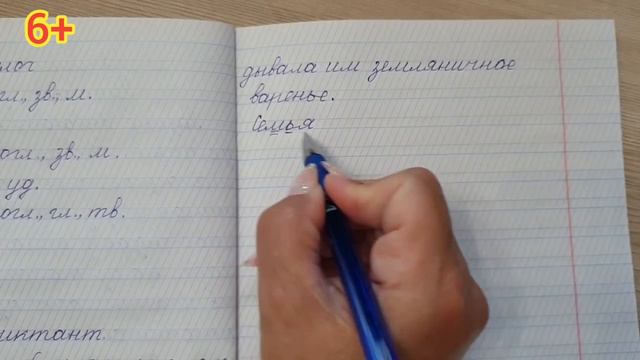 6+
лог
гл., зв., м.
огл., зв., м.
уд.
огл., гл., тв.
иктант.
дывала им земляничное
варенье.
Семья